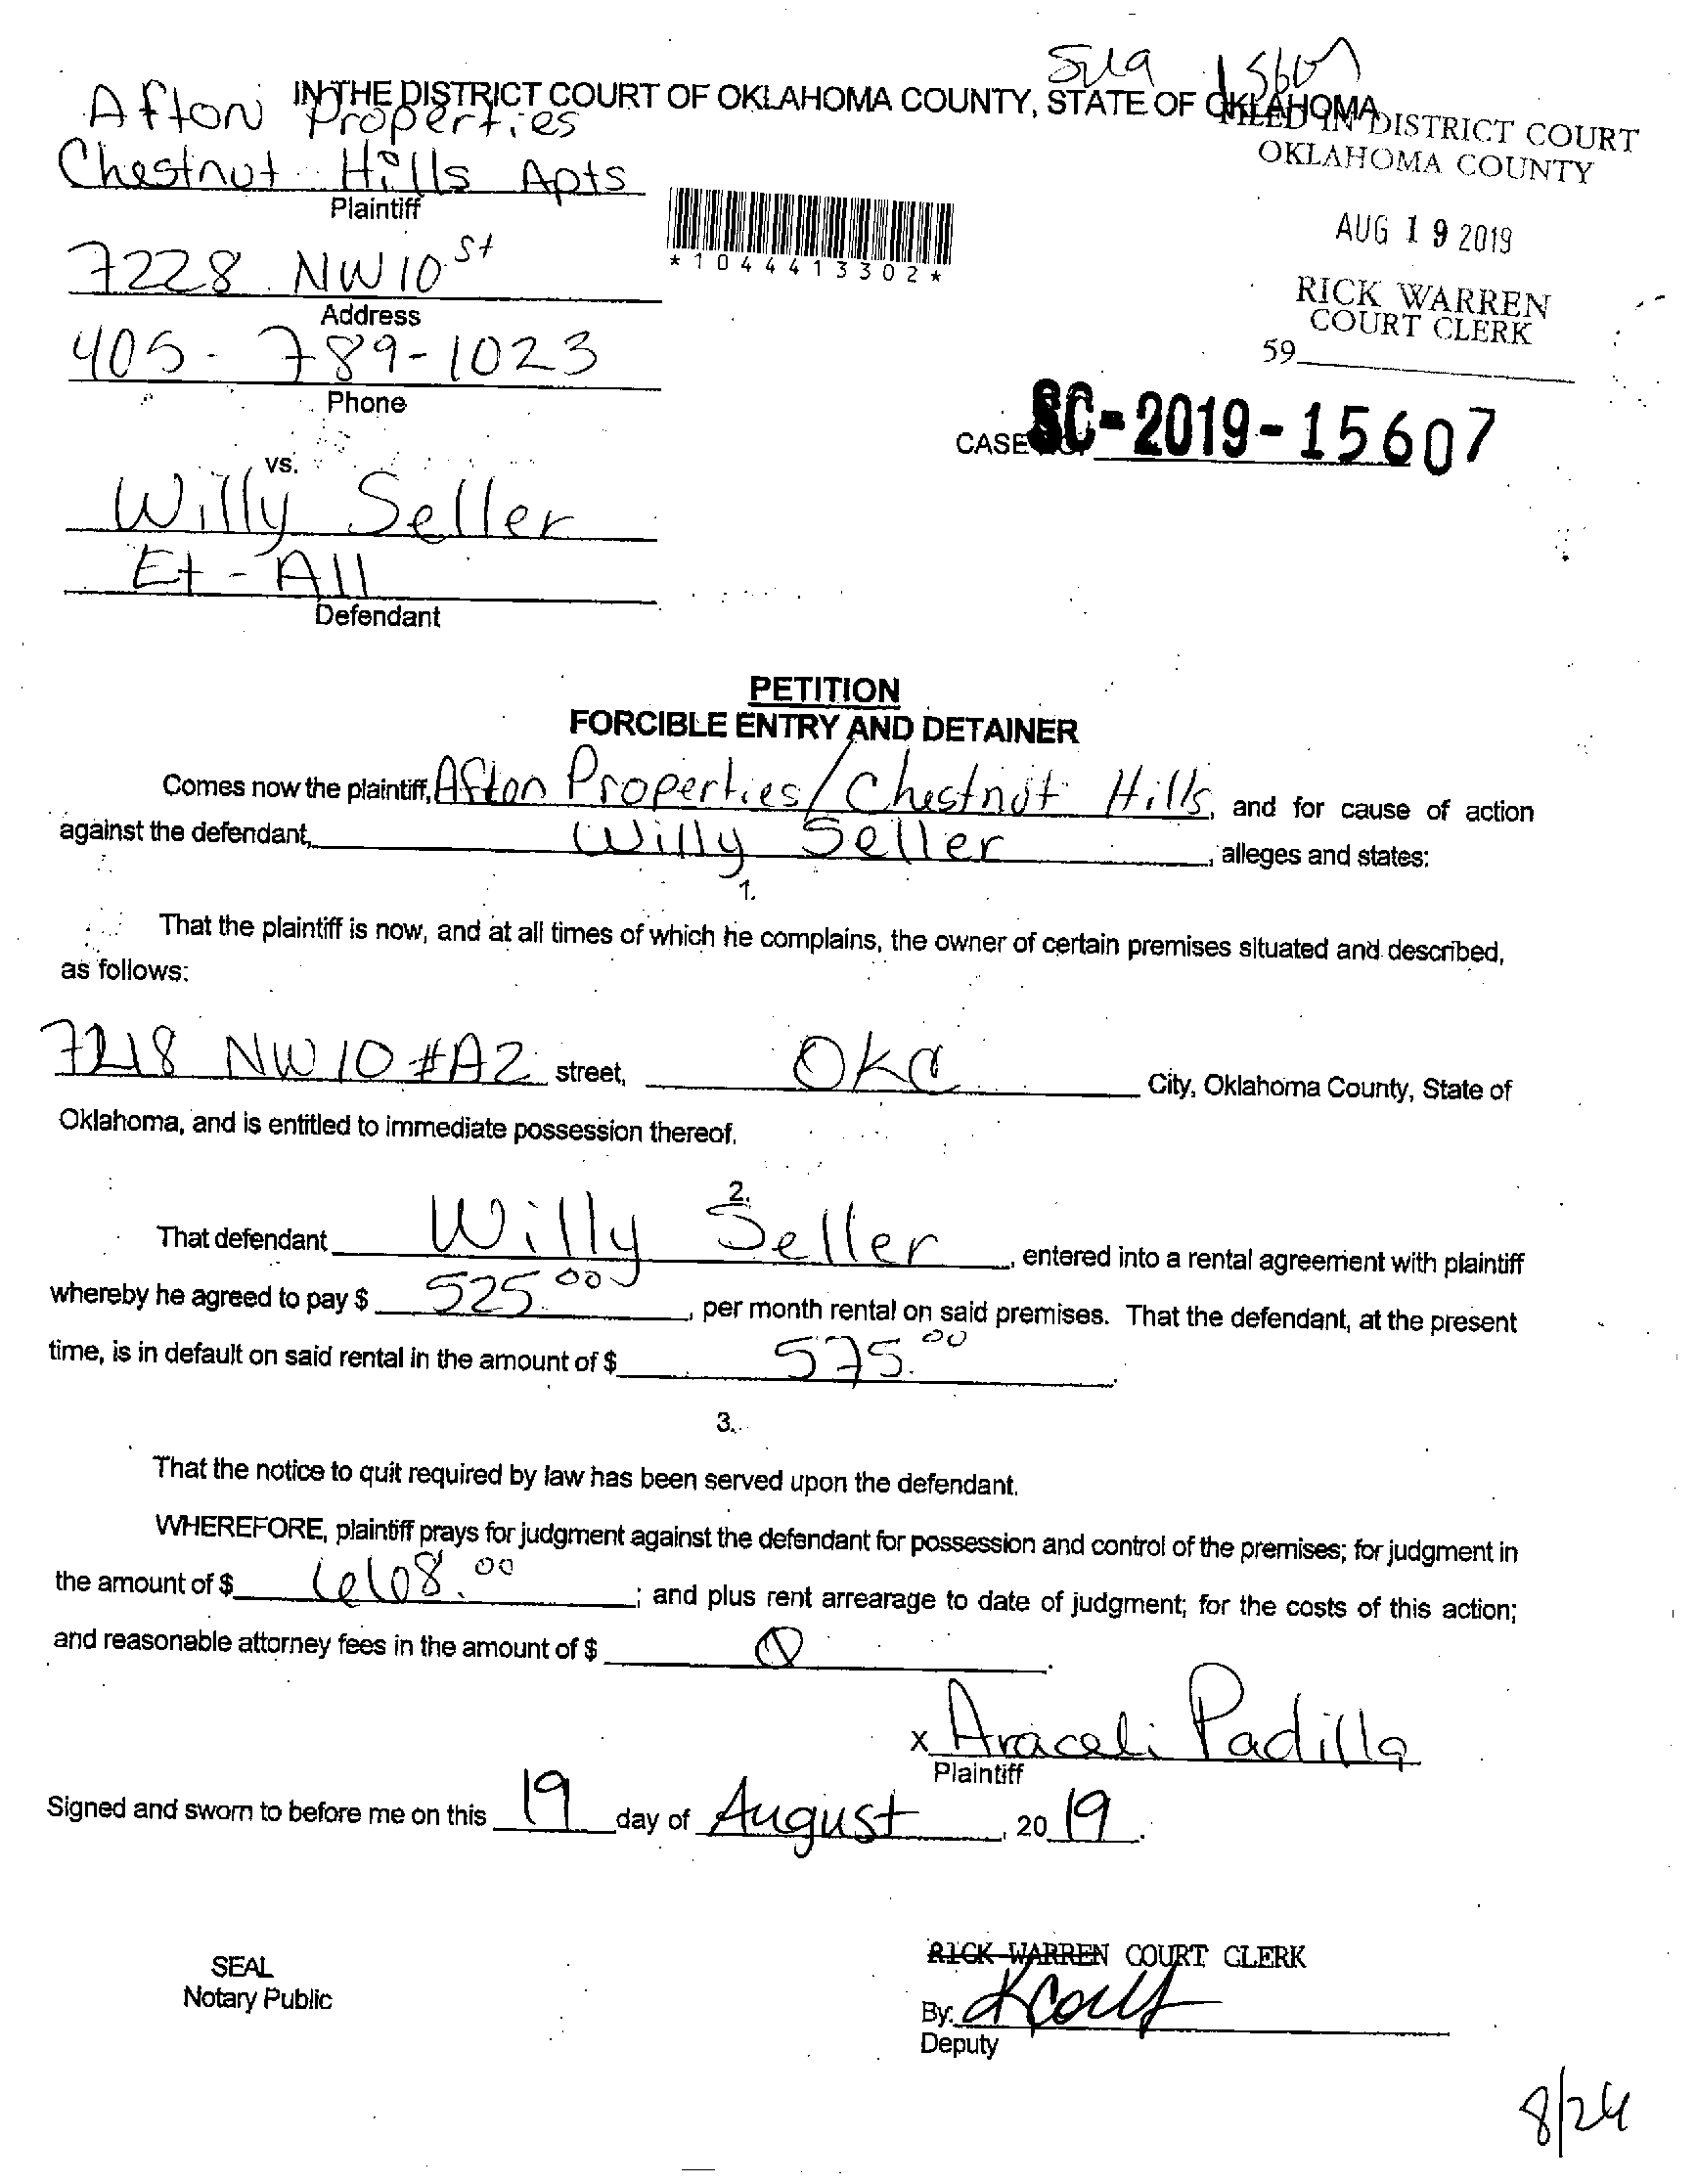 IN THE DISTRICT COURT OF OKLAHOMA COUNTY, STATE OF OKLAHOMA
Afton Properties
Chestnut Hills Apts
Plaintiff
7228 NW 10 St
Address
405-789-1023
Phone
FILED IN DISTRICT COURT
OKLAHOMA COUNTY
AUG 19 2019
RICK WARREN
COURT CLERK
59
*1044413302*
CASE SC-2019-15607
vs.
Willy Seller
Et-All
Defendant
PETITION
FORCIBLE ENTRY AND DETAINER
Comes now the plaintiff, Afton Properties/Chestnut Hills, and for cause of action
against the defendant, Willy Seller, alleges and states:
1.
That the plaintiff is now, and at all times of which he complains, the owner of certain premises situated and described,
as follows:
7218 NW 10 #A2 street, OKC City, Oklahoma County, State of
Oklahoma, and is entitled to immediate possession thereof.
2.
That defendant Willy Seller, entered into a rental agreement with plaintiff
whereby he agreed to pay $ 525.00, per month rental on said premises. That the defendant, at the present
time, is in default on said rental in the amount of $ 575.00.
3.
That the notice to quit required by law has been served upon the defendant.
WHEREFORE, plaintiff prays for judgment against the defendant for possession and control of the premises; for judgment in
the amount of $ 668.00; and plus rent arrearage to date of judgment; for the costs of this action;
and reasonable attorney fees in the amount of $
x Araceli Padilla
Plaintiff
Signed and sworn to before me on this 19 day of August, 2019.
SEAL
Notary Public
RICK WARREN COURT CLERK
By:
Deputy
8/26